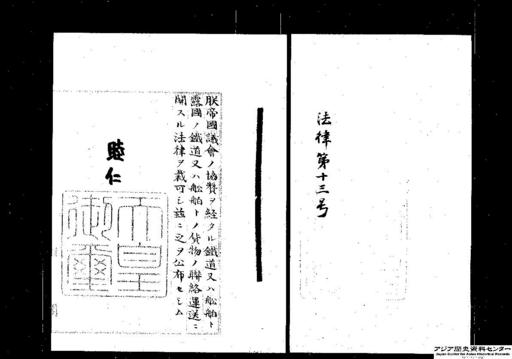 法律第十三号
朕帝國議會ノ協賛ヲ経タル鐵道又ハ舩舶ト
露國ノ鐵道又ハ舩舶トノ貨物ノ聯絡運送ニ
關スル法律ヲ裁可シ茲ニ之ヲ公布セシム
睦仁
天皇
御璽
アジア歴史資料センター
Japan Center for Asian Historical Records